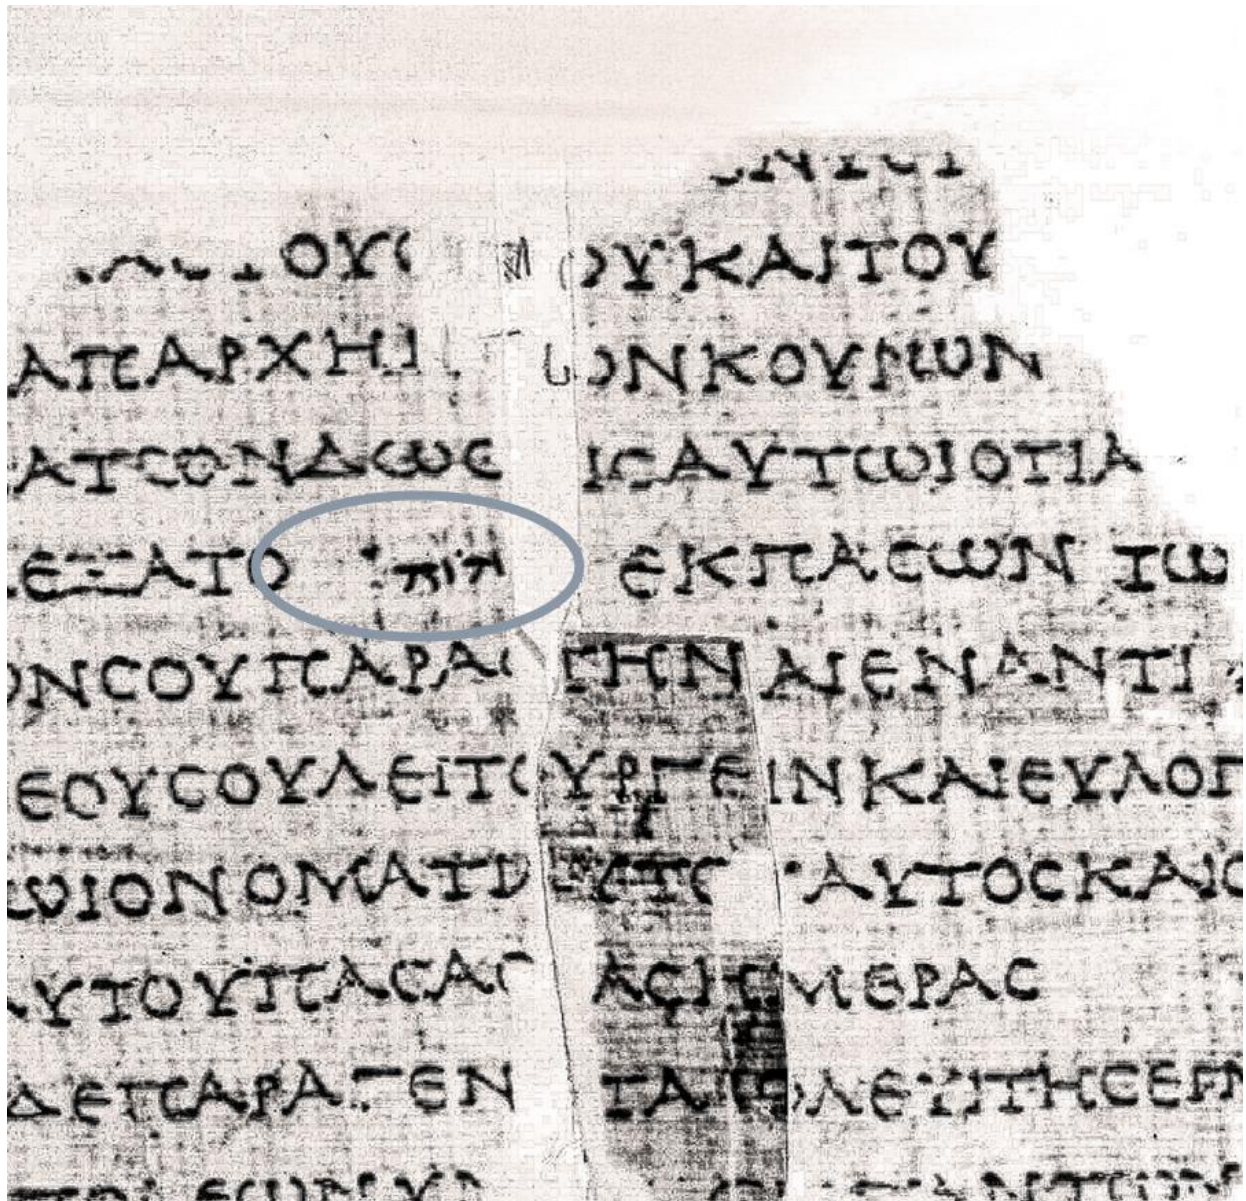 ΟΥϹ ΟΥΚΑΙΤΟΥ
ΑΠΑΡΧΗ ΩΝΚΟΥΡΩΝ
ΑΤΩΝΔΩϹΕ ΙϹΑΥΤΩΙΟΤΙΑ
ΕΞΑΤΟ יהוה ΕΚΠΑϹΩΝ ΤΩ
ΟΝϹΟΥΠΑΡΑϹΤΗΝΑΙΕΝΑΝΤΙ
ΕΟΥϹΟΥΛΕΙΤΟΥΡΓΕΙΝΚΑΙΕΥΛΟΓ
ΩΙΟΝΟΜΑΤΙ ΥΤΟ ΑΥΤΟϹΚΑΙΟ
ΑΥΤΟΥΠΑϹΑϹ ΑϹΗΜΕΡΑϹ
ΔΕΠΑΡΑΓΕΝ ΤΑΙΟΛΕΥΙΤΗϹΕΓ